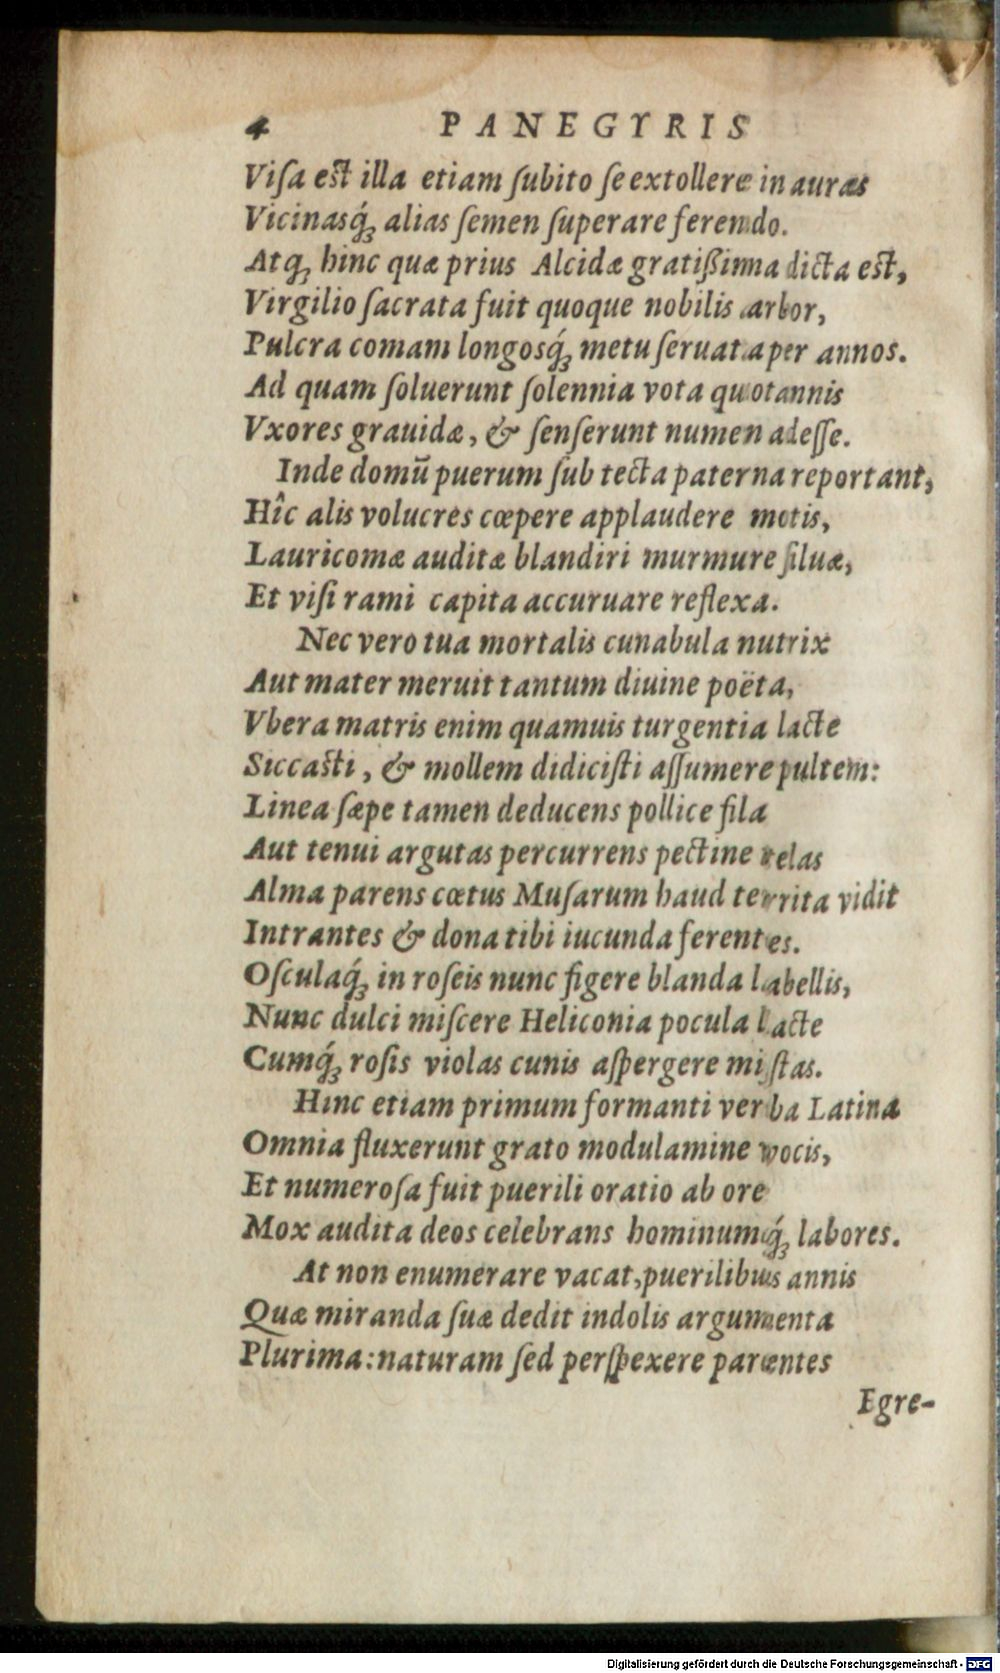 4 PANEGYRIS
Viſa eſt illa etiam ſubito ſe extollere in auras
Vicinasq́ꝫ alias ſemen ſuperare ferendo.
Atqꝫ hinc quæ prius Alcidæ gratißima dicta eſt,
Virgilio ſacrata fuit quoque nobilis arbor,
Pulcra comam longosq́ꝫ metu ſeruata per annos.
Ad quam ſoluerunt ſolennia vota quotannis
Vxores grauidæ, & ſenſerunt numen adeſſe.
Inde domū puerum ſub tecta paterna reportant,
Hîc alis volucres cœpere applaudere motis,
Lauricomæ auditæ blandiri murmure ſiluæ,
Et viſi rami capita accuruare reflexa.
Nec vero tua mortalis cunabula nutrix
Aut mater meruit tantum diuine poëta,
Vbera matris enim quamuis turgentia lacte
Siccaſti, & mollem didiciſti aſſumere pultem:
Linea ſæpe tamen deducens pollice fila
Aut tenui argutas percurrens pectine telas
Alma parens cœtus Muſarum haud territa vidit
Intrantes & dona tibi iucunda ferentes.
Oſculaq́ꝫ in roſeis nunc figere blanda labellis,
Nunc dulci miſcere Heliconia pocula lacte
Cumq́ꝫ roſis violas cunis aſpergere miſtas.
Hinc etiam primum formanti verba Latina
Omnia fluxerunt grato modulamine vocis,
Et numeroſa fuit puerili oratio ab ore
Mox audita deos celebrans hominumq́ꝫ labores.
At non enumerare vacat, puerilibus annis
Quæ miranda ſuæ dedit indolis argumenta
Plurima: naturam ſed perſpexere parentes
Egre-
Digitalisierung gefördert durch die Deutsche Forschungsgemeinschaft - DFG